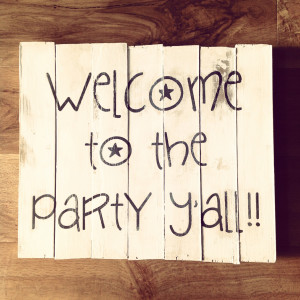 Welcome
to the
party y'all!!